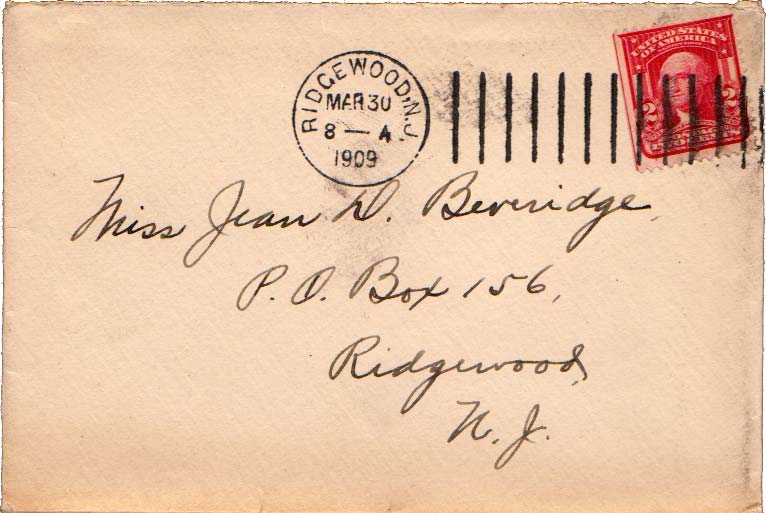 RIDGEWOOD, N.J.
MAR 30
8 — A
1909
UNITED STATES
OF AMERICA
2 2
Miss Jean D. Beveridge,
P. O. Box 156,
Ridgewood,
N. J.